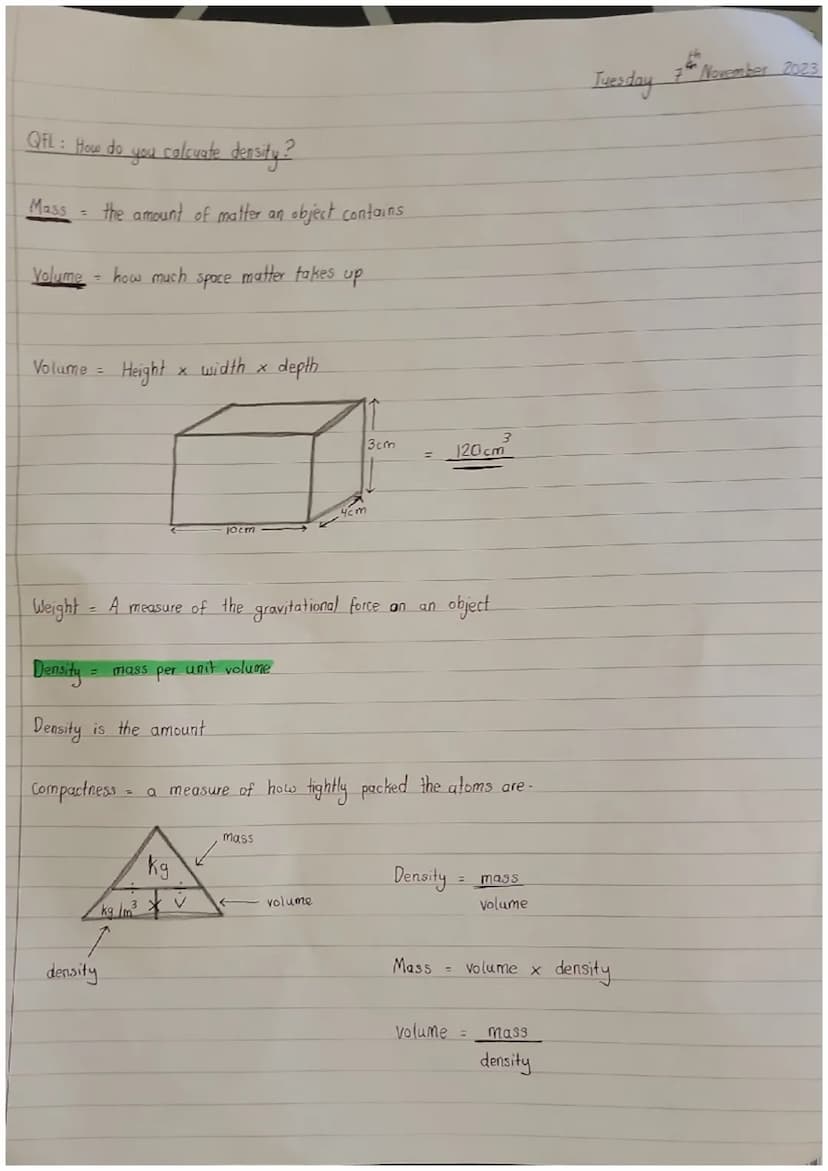 Tuesday 7th November 2023
QFL: How do you calcuate density?
Mass = the amount of matter an object contains
Volume = how much space matter takes up
Volume = Height x width x depth
3cm
= 120cm³
4cm
10cm
Weight = A measure of the gravitational force on an object
Density = mass per unit volume
Density is the amount
Compactness = a measure of how tightly packed the atoms are.
mass
kg
÷ ÷
kg/m³ x V
volume
density
Density = mass
volume
Mass = volume x density
volume = mass
density